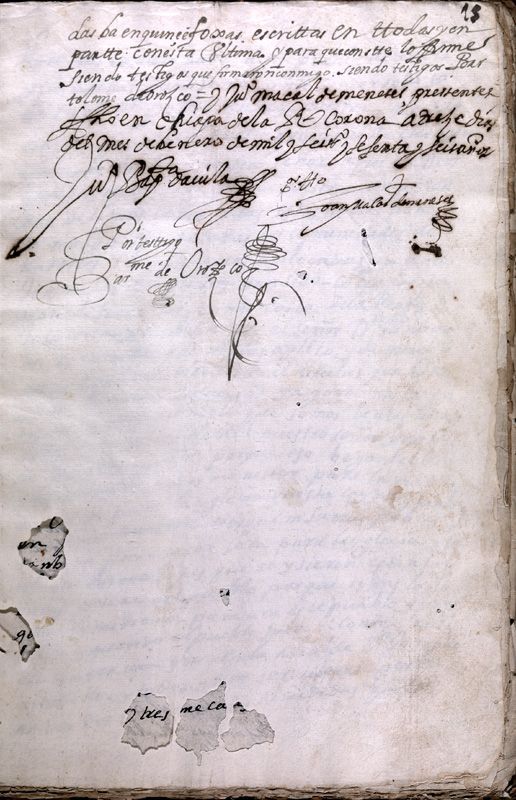 15
das ba en quinçe foxas escrittas en ttodas y en
partte con esta ultima y para que conste lo firme
siendo testigos que firmaron conmigo siendo testigos Bar
tolome de orosco = y Juº macal de meneses presentes
ffho en Chiapa de la Rl Corona a trese dias
del mes de henero de mil y seisº y sesenta y seis años
Juº Bapta davila
por ttº
Joan macal de meneses
Por testtigo
Barme de Orozco
y tres meca